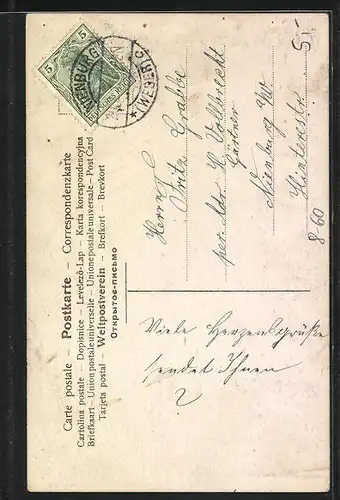 Carte postale – Postkarte – Correspondenzkarte
Cartolina postale – Dopisnice – Levelező-Lap – Karta korespondencyjna
Briefkaart – Union postale universelle – Unione postale universale – Post Card
Tarjeta postal – Weltpostverein – Brefkort – Brevkort
Открытое-письмо
5 5
NIENBURG
* (WESER) *
Herrn
Fritz Grabbe
per. Adr. H. Vollbrecht
Gärtner
Nienburg a/W.
Hinterestr.
5,-
860
Viele Herzensgrüße
sendet Ihnen
?